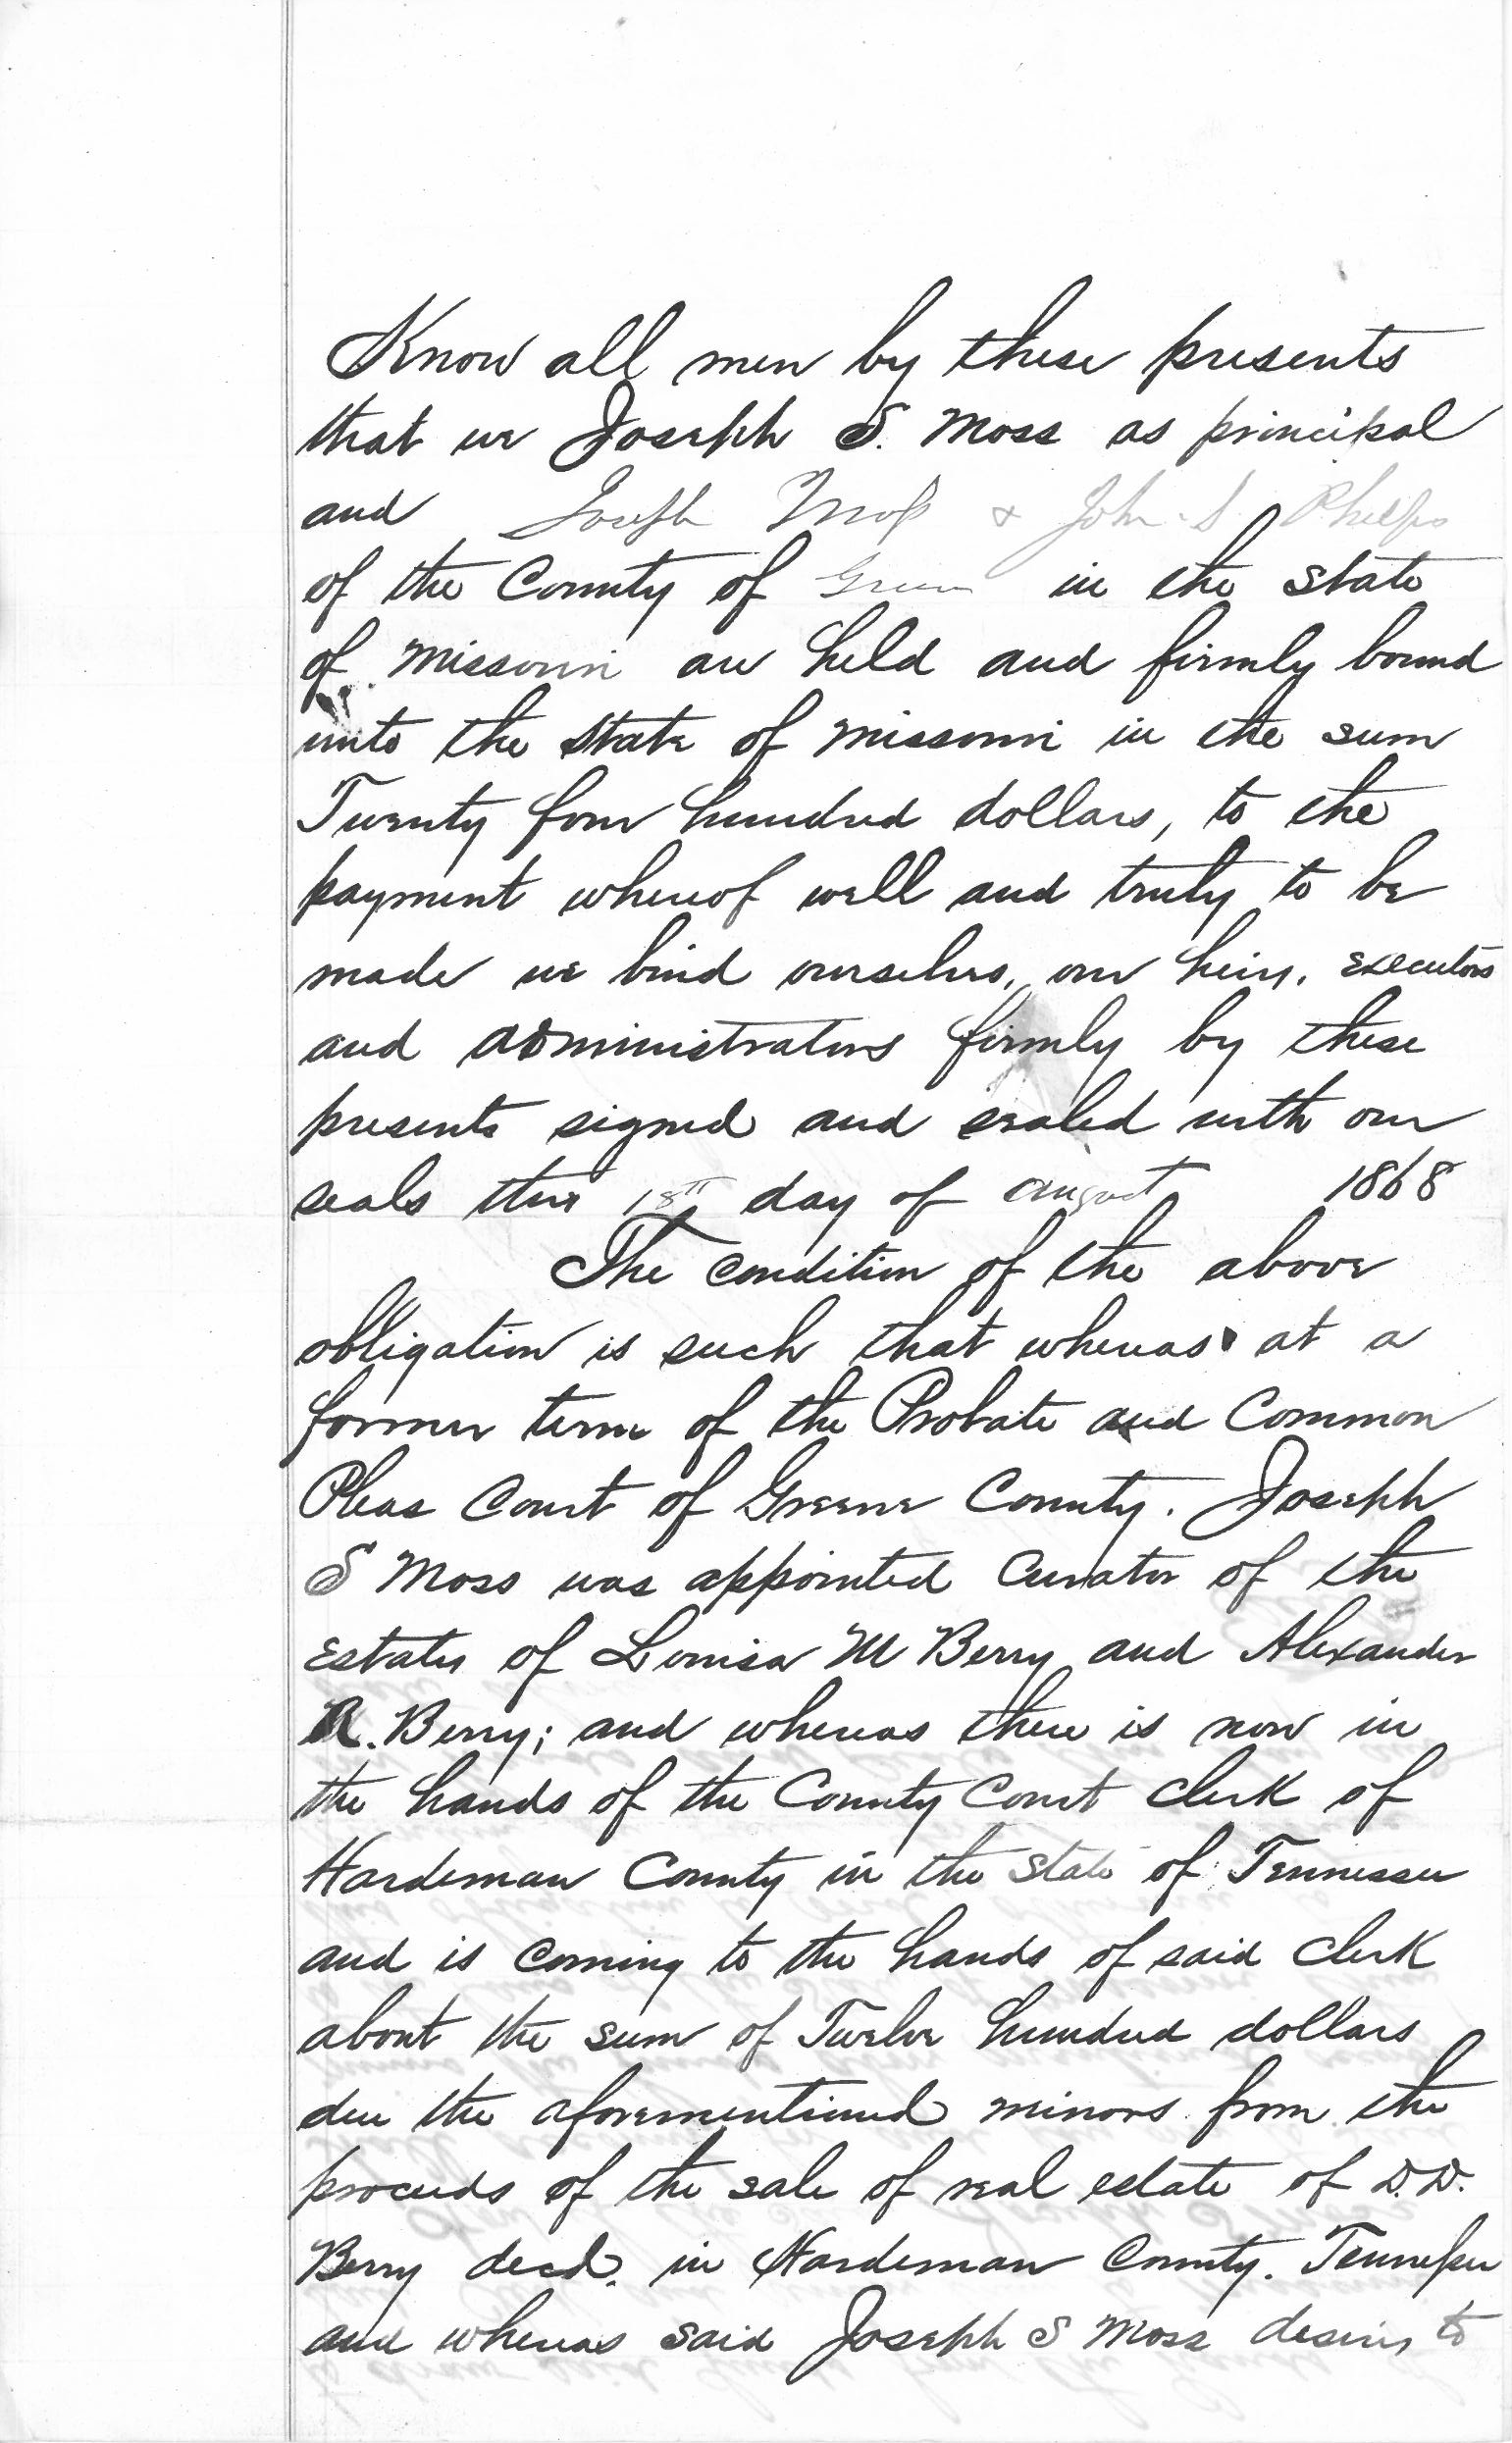 Know all men by these presents
that we Joseph S. Moss as principal
and Joseph Moss & John S. Phelps
of the County of Green in the State
of Missouri are held and firmly bound
unto the State of Missouri in the sum
Twenty four hundred dollars, to the
payment whereof well and truly to be
made we bind ourselves, our heirs, executors
and administrators firmly by these
presents signed and sealed with our
seals this 18th day of August 1868
The condition of the above
obligation is such that whereas at a
former term of the Probate and Common
Pleas Court of Greene County. Joseph
S Moss was appointed Curator of the
Estates of Louisa M Berry and Alexander
R. Berry; and whereas there is now in
the hands of the County Court Clerk of
Hardeman County in the State of Tennessee
and is coming to the hands of said Clerk
about the sum of Twelve hundred dollars
due the aforementioned minors from the
proceeds of the sale of real estate of D.D.
Berry decd. in Hardeman County. Tennessee
and whereas said Joseph S Moss desires to